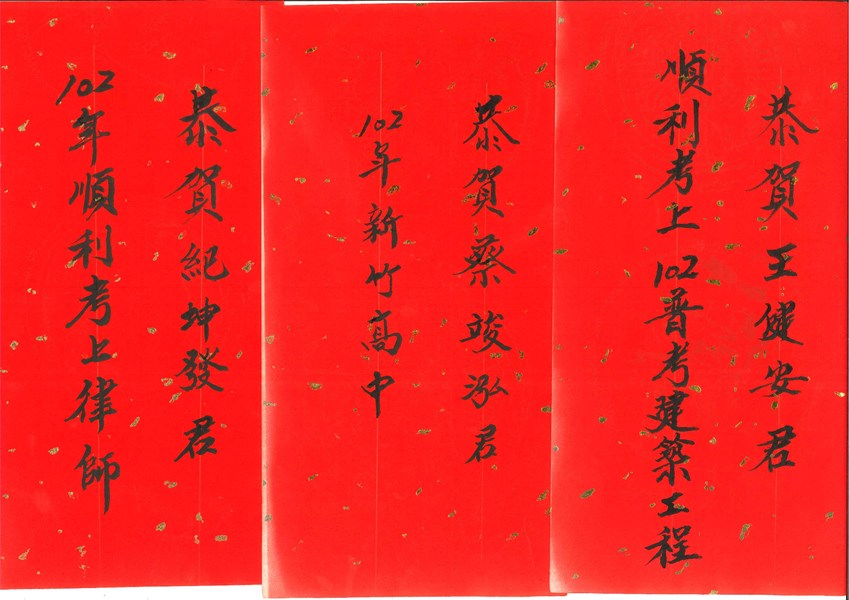 恭賀王健安君
順利考上102普考建築工程
恭賀蔡竣泓君
102年新竹高中
恭賀紀坤發君
102年順利考上律師